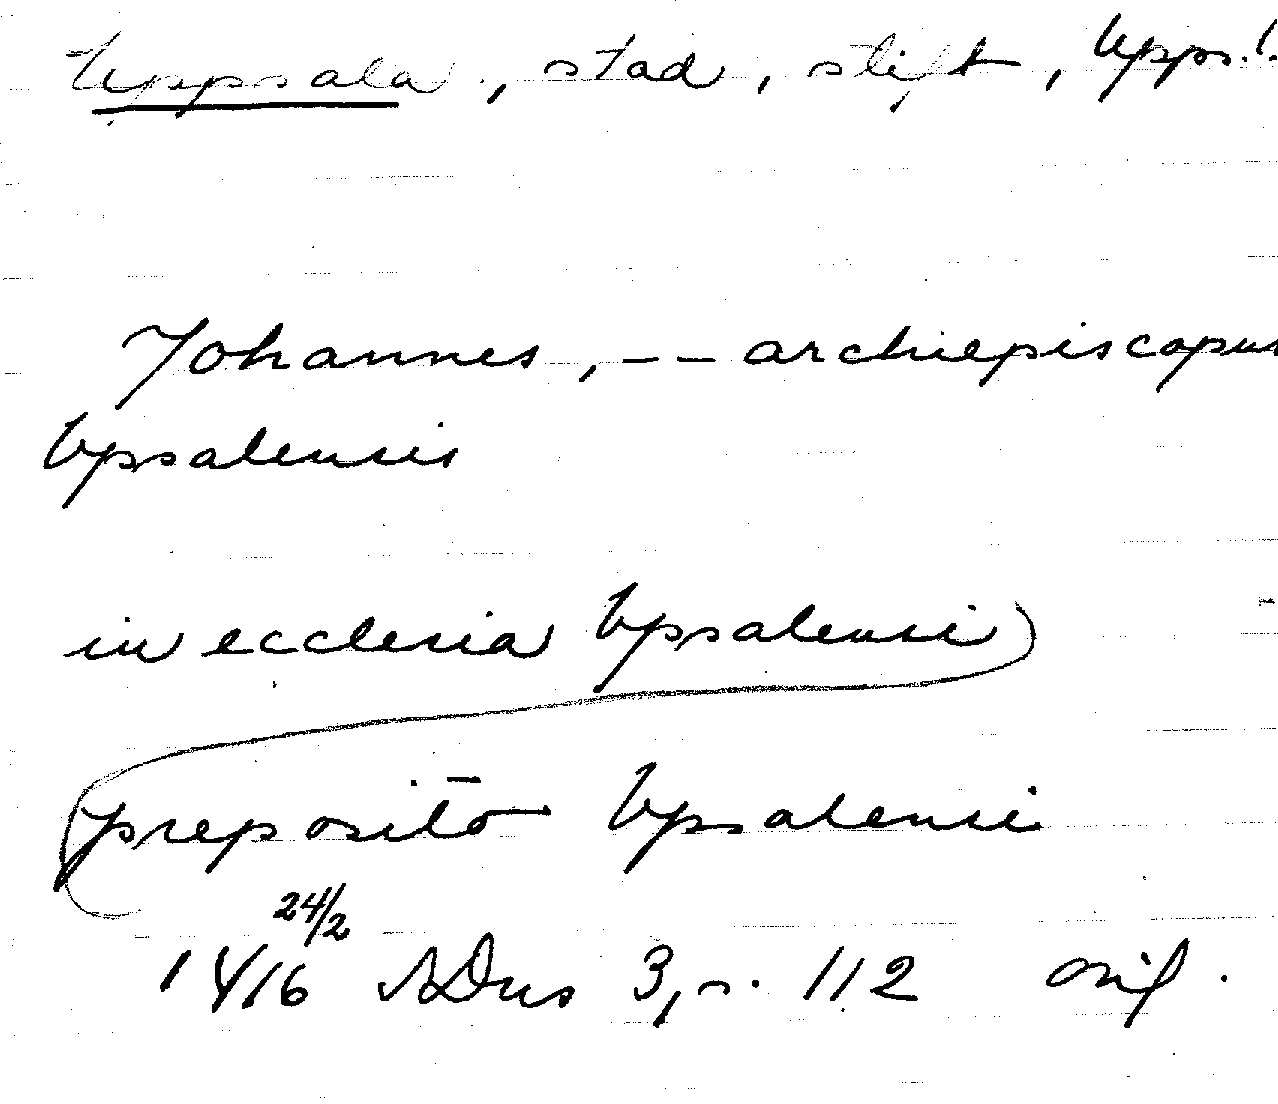 Uppsala, stad, stift, Upps.l.
Johannes, -- archiepiscopus
Vpsalensis
in ecclesia Vpsalensi
preposito Vpsalensi
24/2
1416 SDns 3, s. 112 orig.